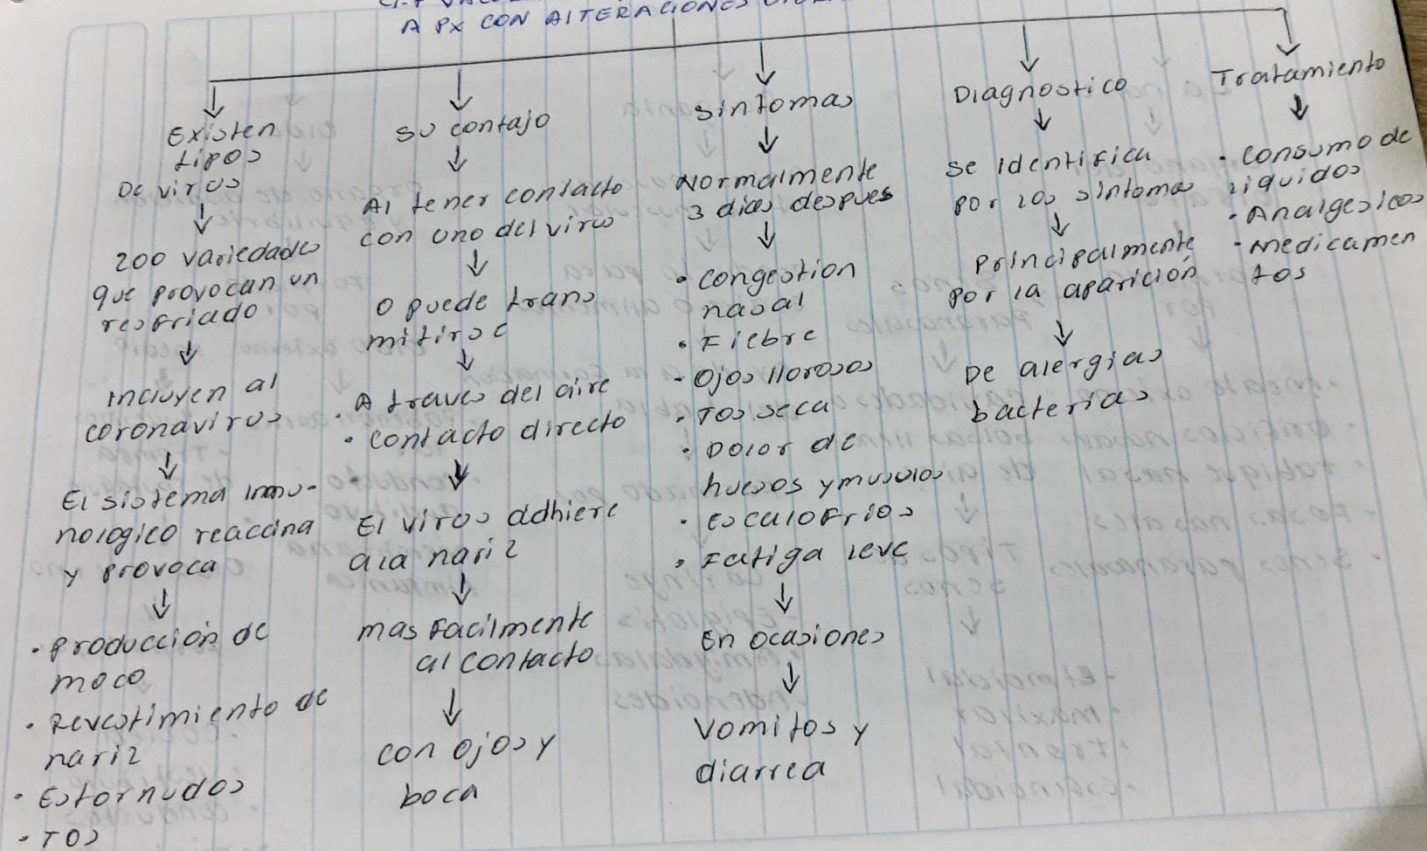 A PX CON ALTERACIONES
Existen
tipos
De virus
200 variedades
que provocan un
resfriado
Incluyen al
coronavirus
El sistema inmu-
nologico reaccina
y provoca
• Producción de
moco
• Revestimiento de
nariz
• Estornudos
• Tos
Su contajo
Al tener contacto
con uno del virus
O puede trans
mitirse
• A traves del aire
• Contacto directo
El virus adhiere
a la nariz
mas facilmente
al contacto
con ojos y
boca
Sintomas
Normalmente
3 dias despues
• Congestion
nasal
• Fiebre
- Ojos llorosos
• Tos seca
• Dolor de
huesos y musculos
• Escalofrios
• Fatiga leve
En ocasiones
Vomitos y
diarrea
Diagnostico
Se identifica
por los sintomas
Principalmente
Por la aparición
De alergias
bacterias
Tratamiento
• Consumo de
liquidos
• Analgesicos
• Medicamen
tos